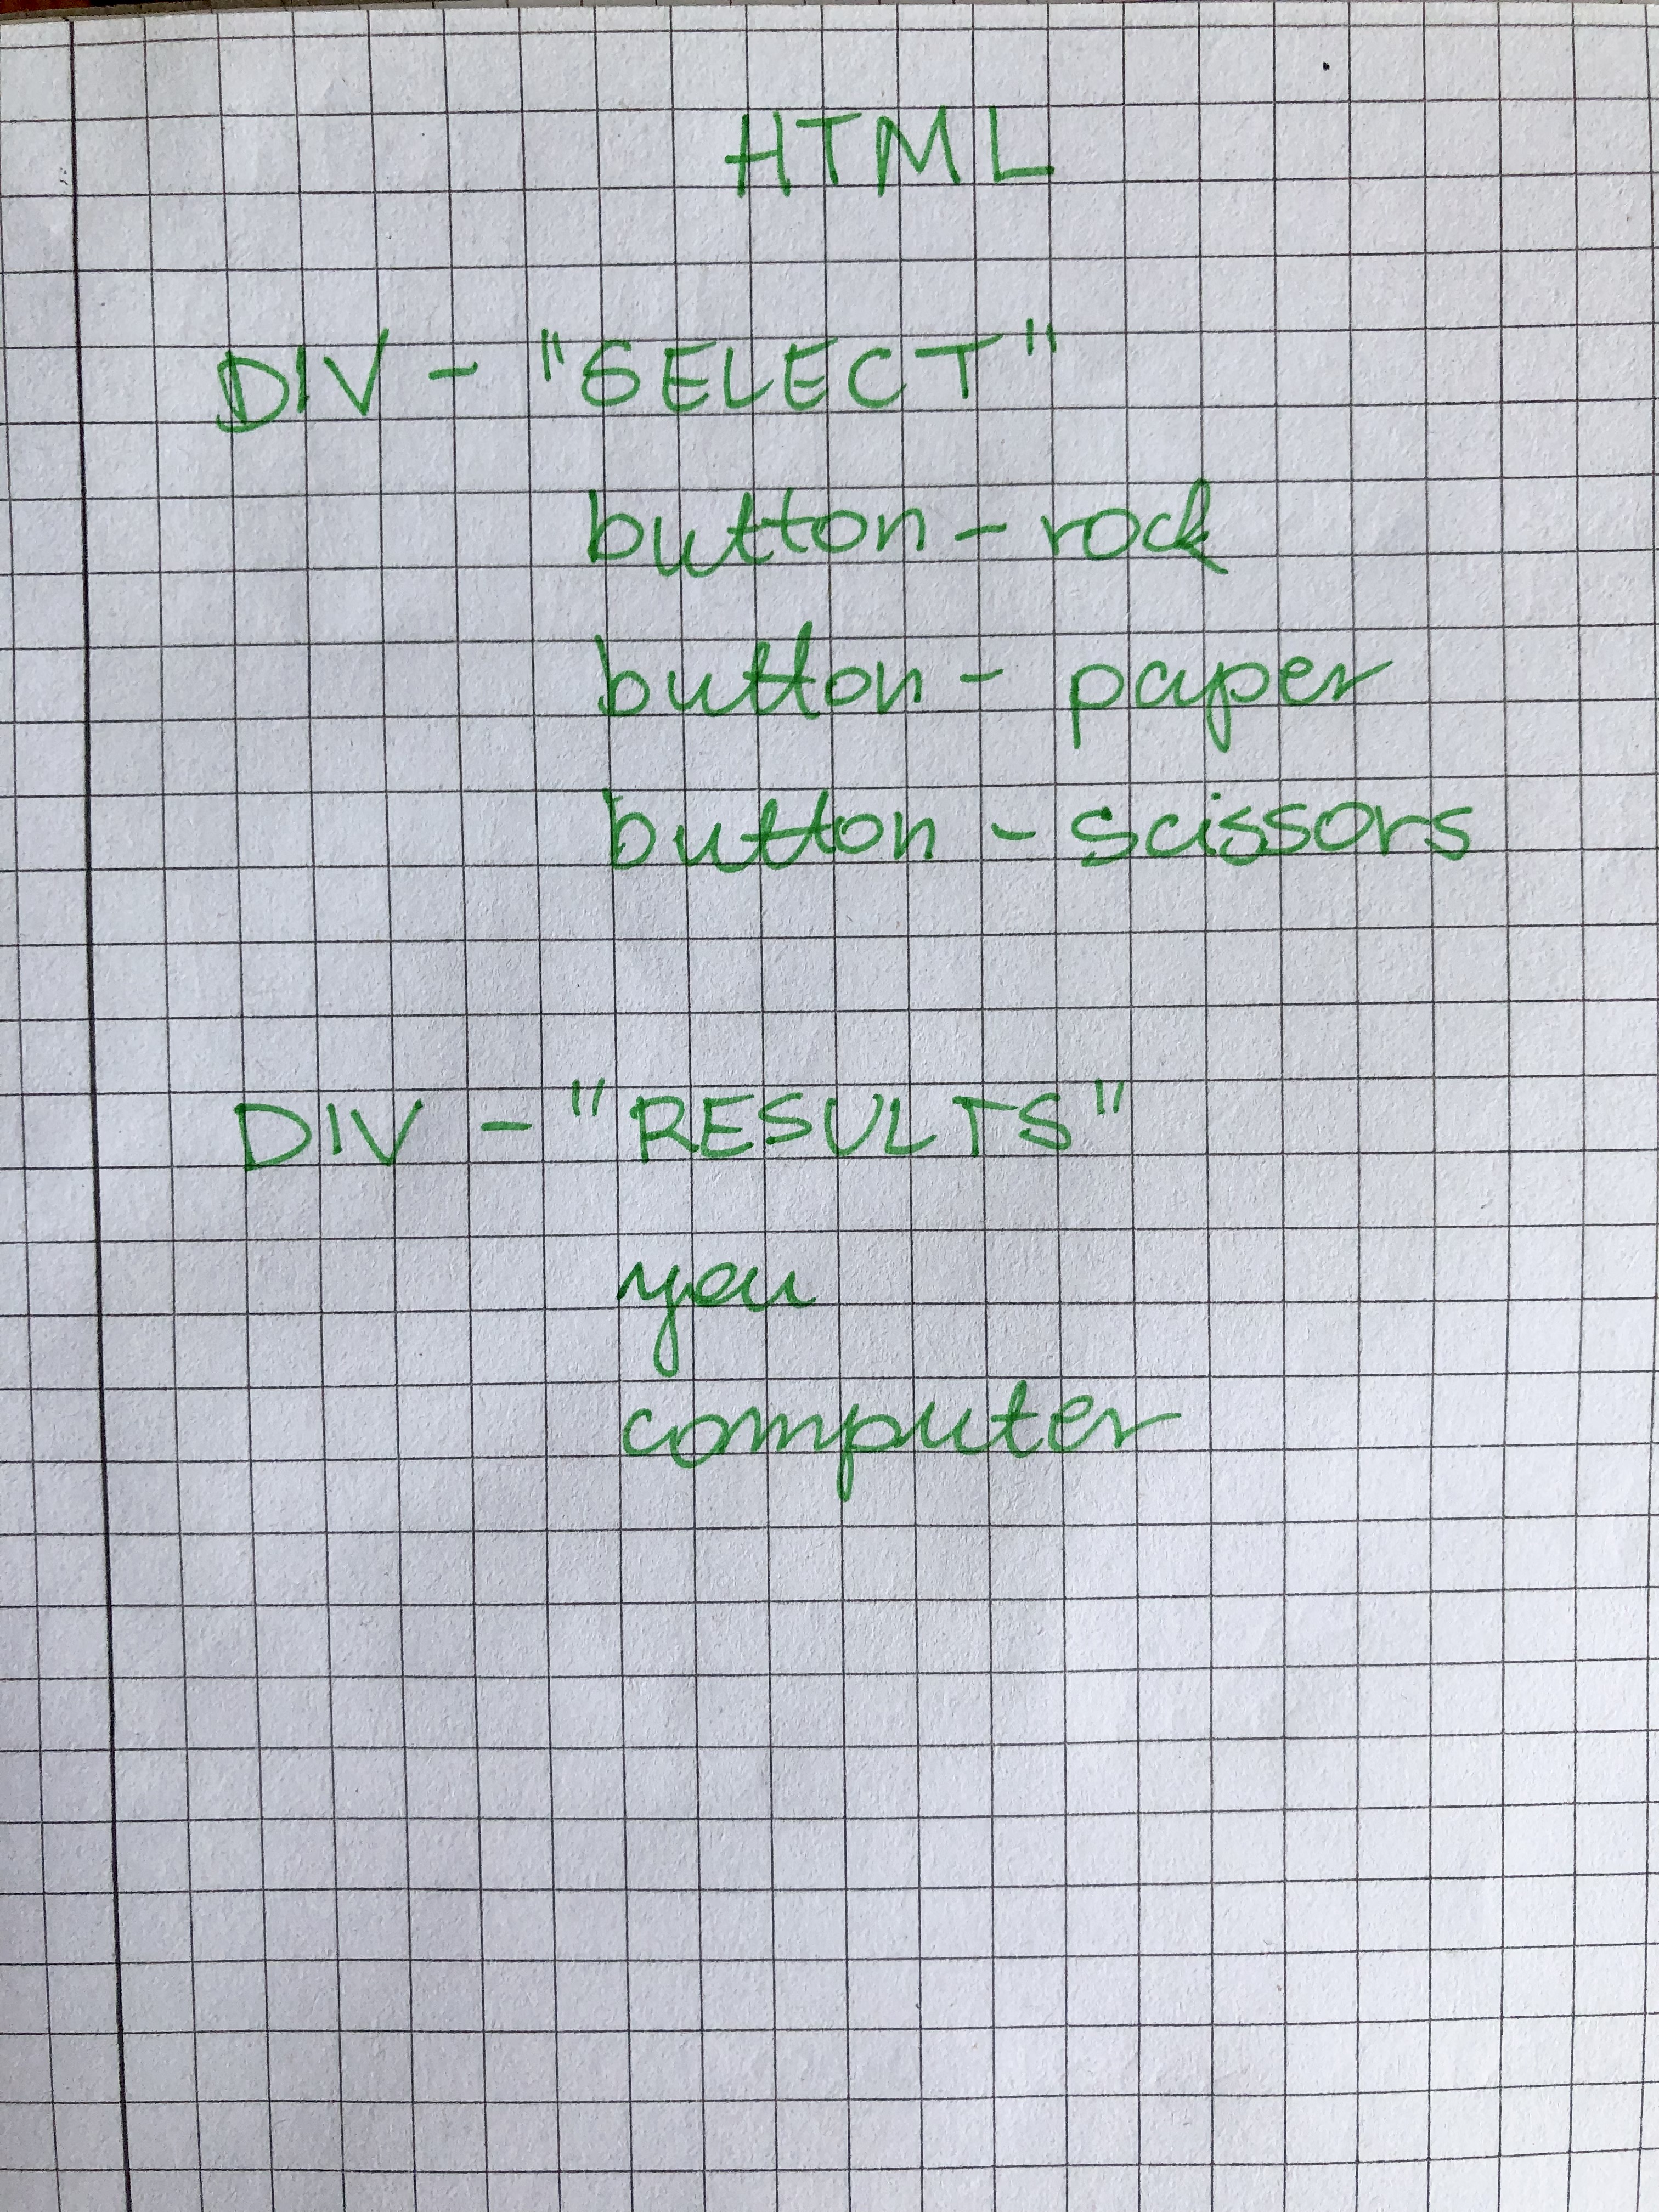 HTML
DIV - "SELECT"
button - rock
button - paper
button - scissors
DIV - "RESULTS"
you
computer